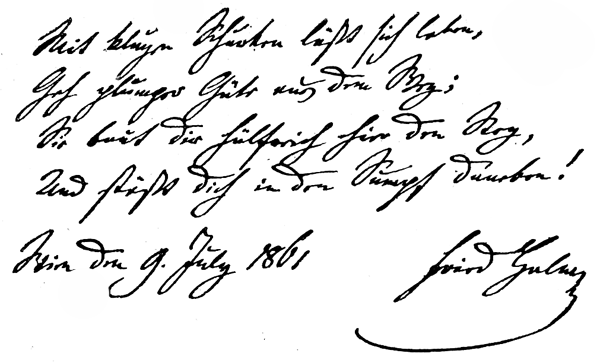 Mit klugen Schurken läßt sich leben,
Geh plumper Güte aus dem Weg;
Sie baut dir hülfreich hier den Steg,
Und stößt dich in den Sumpf daneben!
Wien den 9. July 1861 Fried Halm